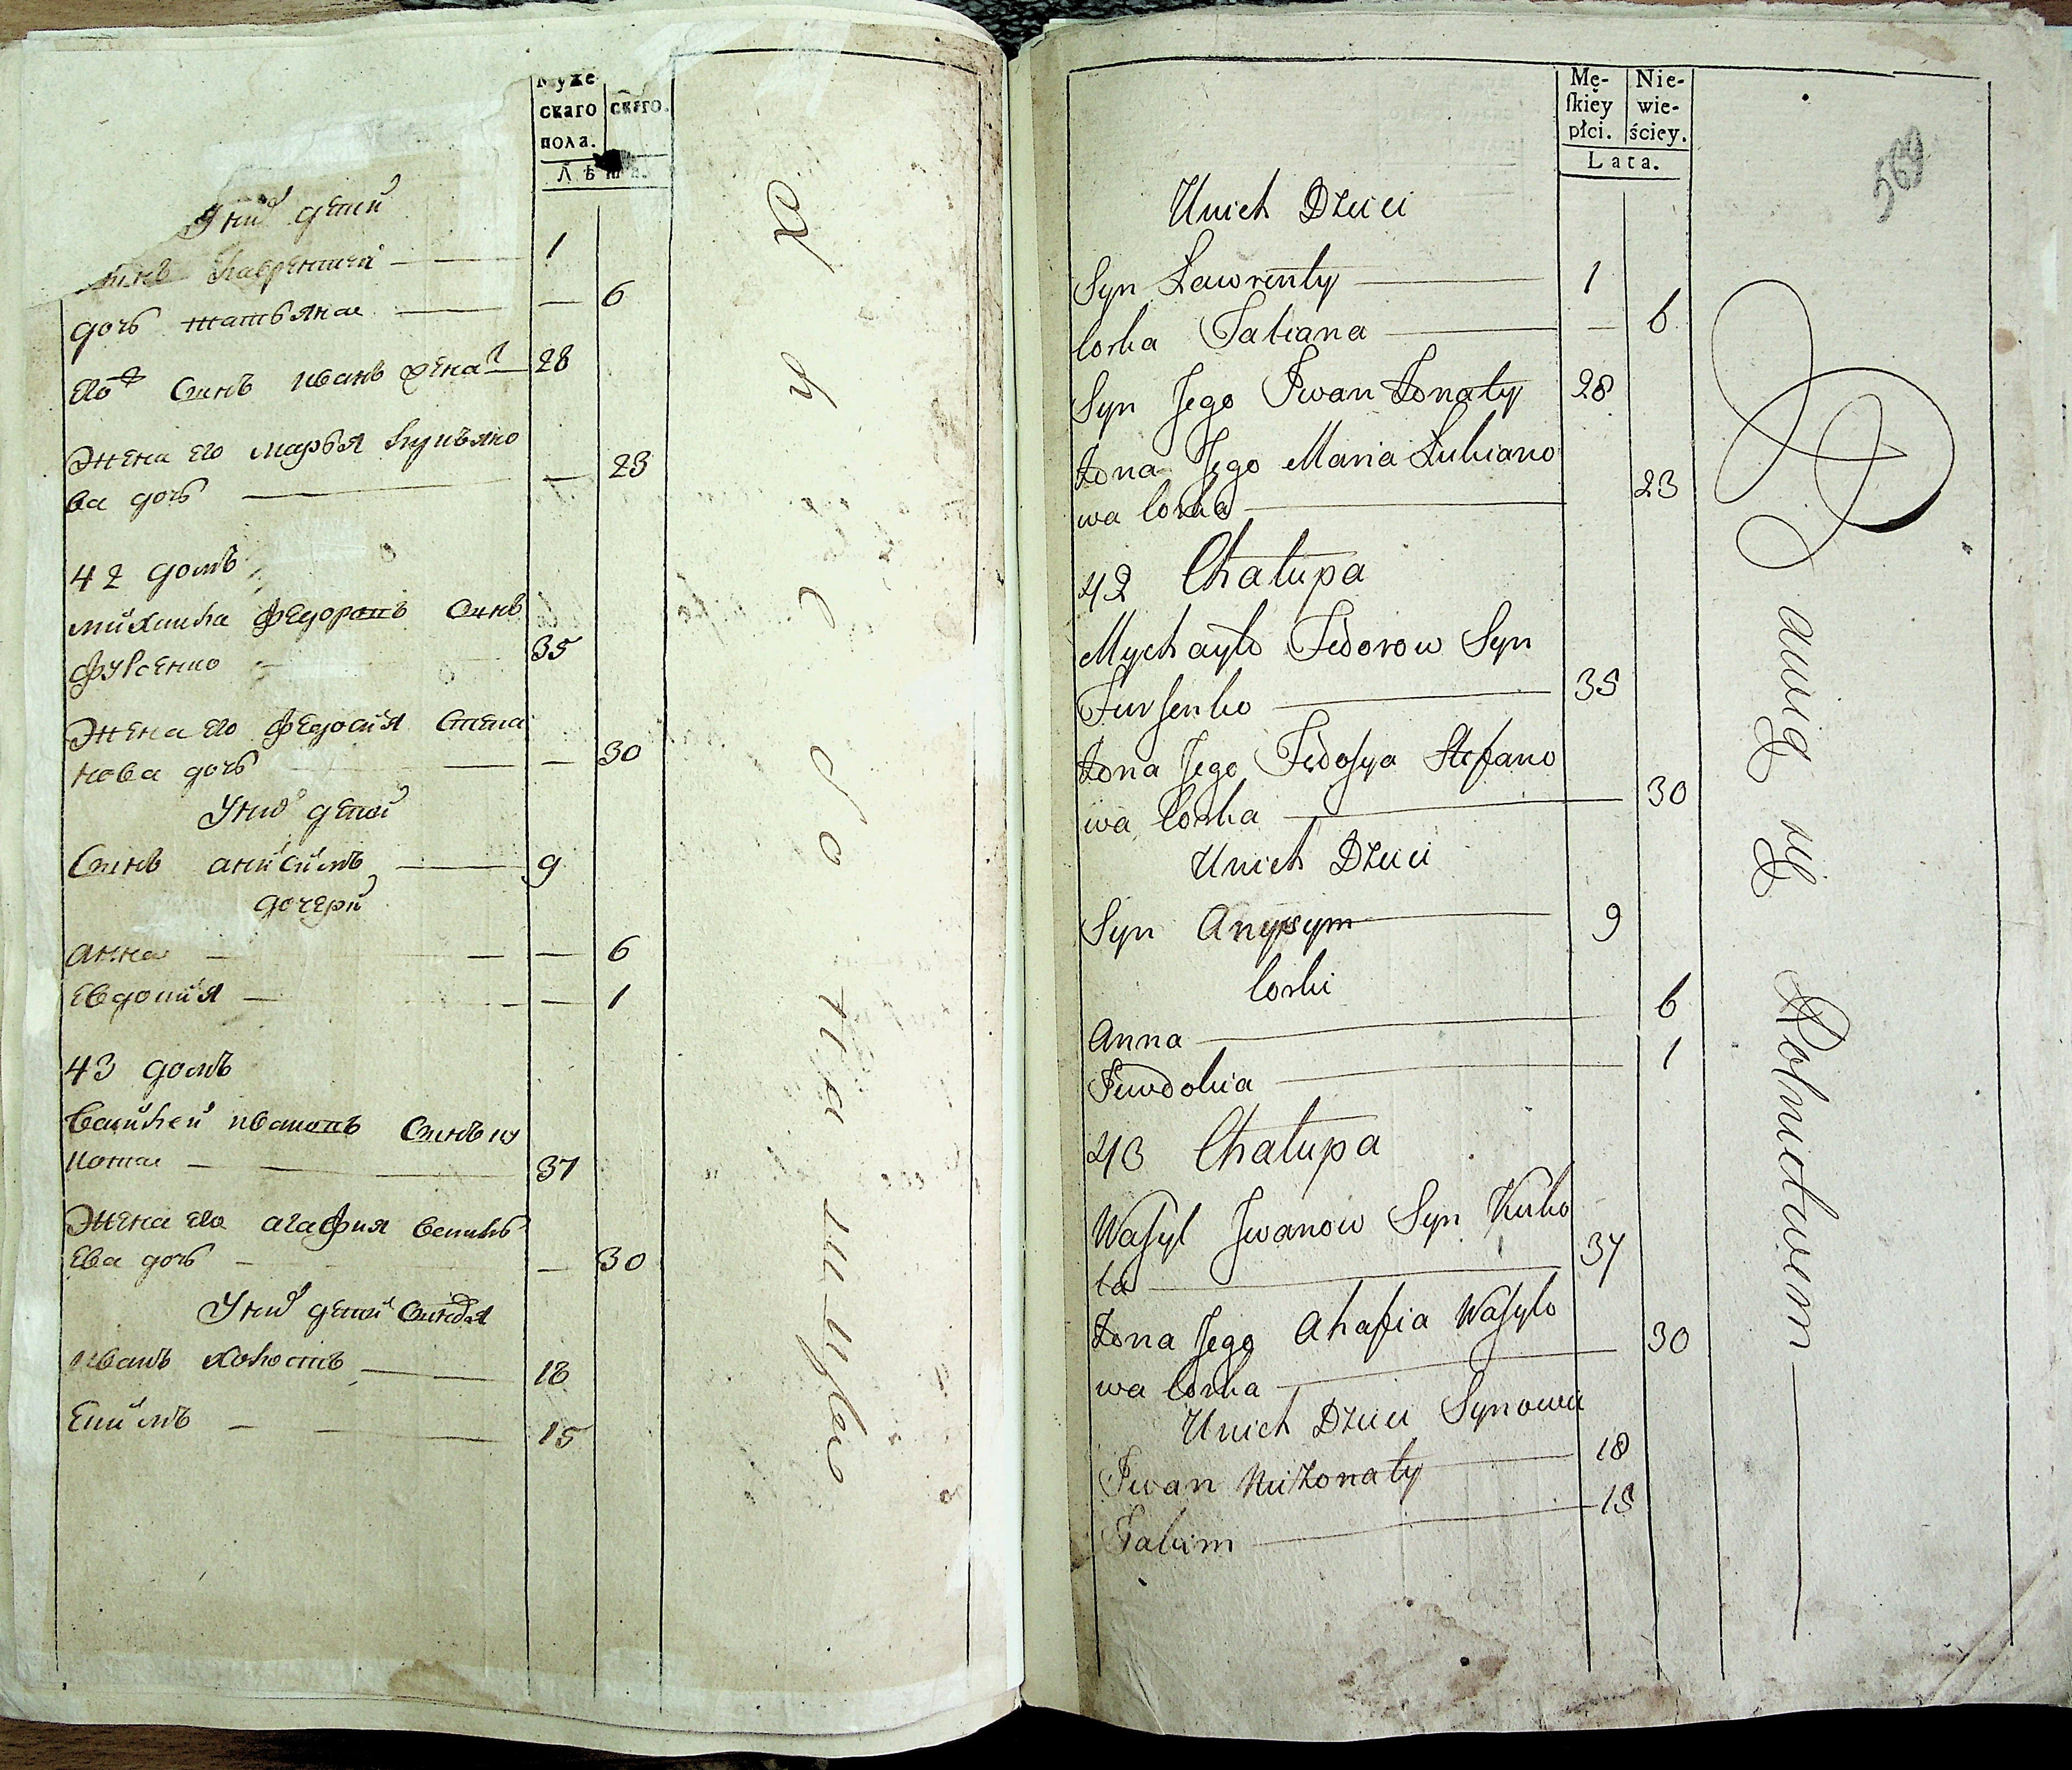 Муже
скаго
пола.
скаго.
Лѣта.
У нихъ дѣтей
сынъ Лаврентий 1
дочь татьяна — 6
его сынъ иванъ женат 28
жена его марья лукьяно
ва дочь — 23
42 домъ
михайла федоровъ сынъ
фурсенко 35
жена его федосия степа
нова дочь — 30
У нихъ дѣтей
сынъ анисимъ 9
дочери
анна — 6
евдокия — 1
43 домъ
василей ивановъ сынъ ку
кота 37
жена его агафия василь
ева дочь — 30
У нихъ дѣтей сыновья
иванъ холостъ 18
еким 15
Mę-
ſkiéy
płci.
Nie-
wie-
ściey.
Lata.
569
U nich Dzieci
Syn Ławrenty 1
Corka Tatiana — 6
Syn Jego Iwan Żonaty 28
Żona Jego Maria Łukiano
wa Corka 23
42 Chałupa
Mychayło Fedorow Syn
Fursenko 35
Żona Jego Fedosya Stefano
wa Corka 30
U nich Dzieci
Syn Anysym 9
Corki
Anna 6
Iewdokia 1
43 Chałupa
Wasyl Iwanow Syn Kuko
ta 37
Żona Jego Ahafia Wasylo
wa Corka 30
U nich Dzieci Synowie
Iwan Nieżonaty 18
Iakim 15
Bawią się Rolnictwem